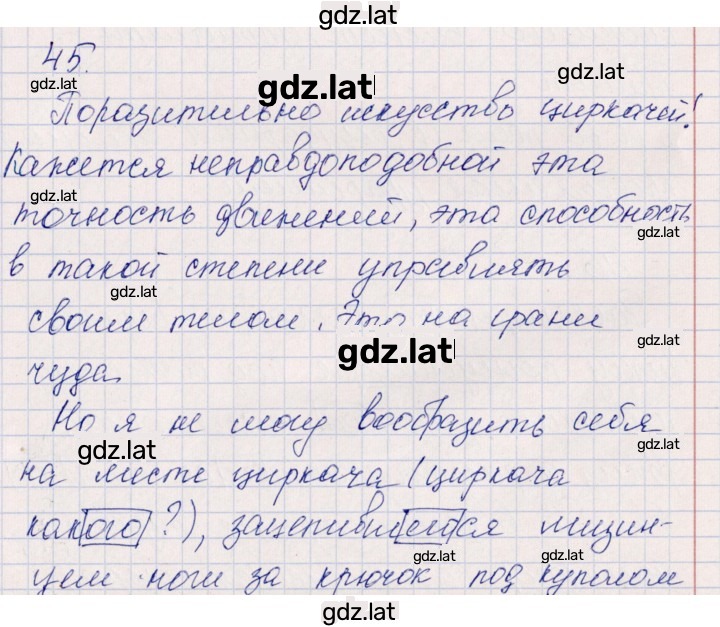 gdz.lat
45.
gdz.lat
gdz.lat
gdz.lat
Поразительно искусство циркачей!
Кажется неправдоподобной эта
gdz.lat
точность движений, эта способность
gdz.lat
в такой степени управлять
gdz.lat
своим телом. Это на грани
gdz.lat
gdz.lat
чуда.
Но я не могу вообразить себя
gdz.lat
gdz.lat
на месте циркача (циркача
какого?), зацепившегося мизин-
gdz.lat
gdz.lat
цем ноги за крючок под куполом
gdz.lat